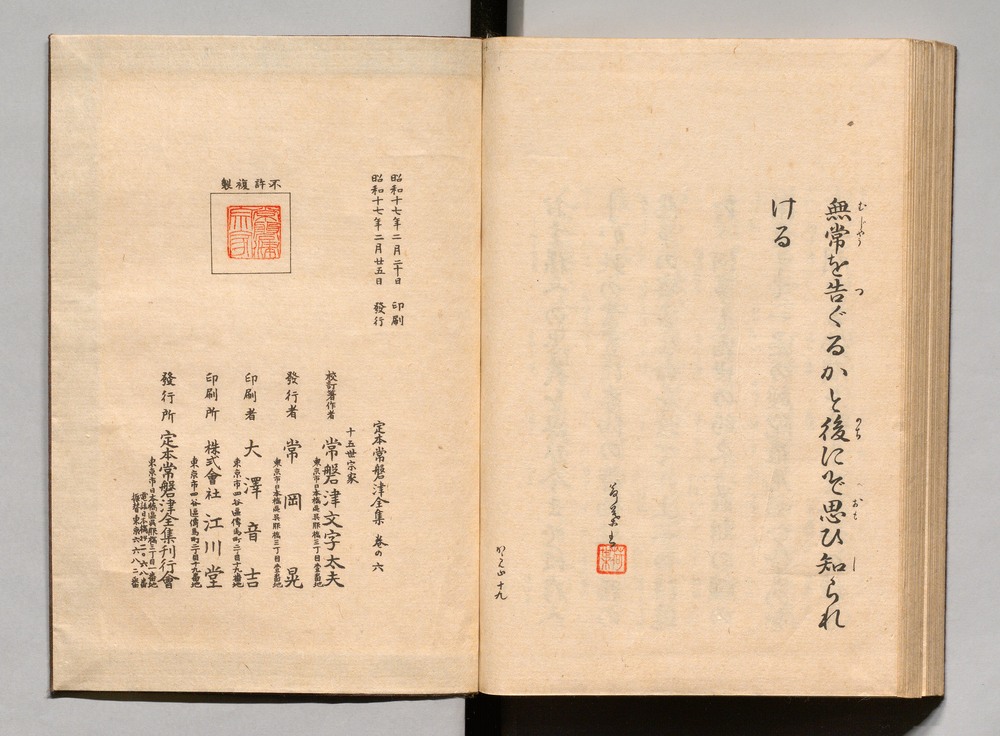 無常を告ぐるかと後にぞ思ひ知られ
むじやう
つ
のち
おも
し
ける
十九
昭和十七年二月二十日 印刷
昭和十七年二月廿五日 發行
不許複製
定本常磐津全集 卷の六
十五世宗家
校訂著作者 常磐津文字太夫
東京市日本橋區吳服橋三丁目壹番地
發行者 常岡晃
東京市日本橋區吳服橋三丁目壹番地
印刷者 大澤音吉
東京市四谷區傳馬町二丁目十九番地
印刷所 株式會社 江川堂
東京市四谷區傳馬町二丁目十九番地
發行所 定本常磐津全集刊行會
東京市日本橋區吳服橋三丁目一番地